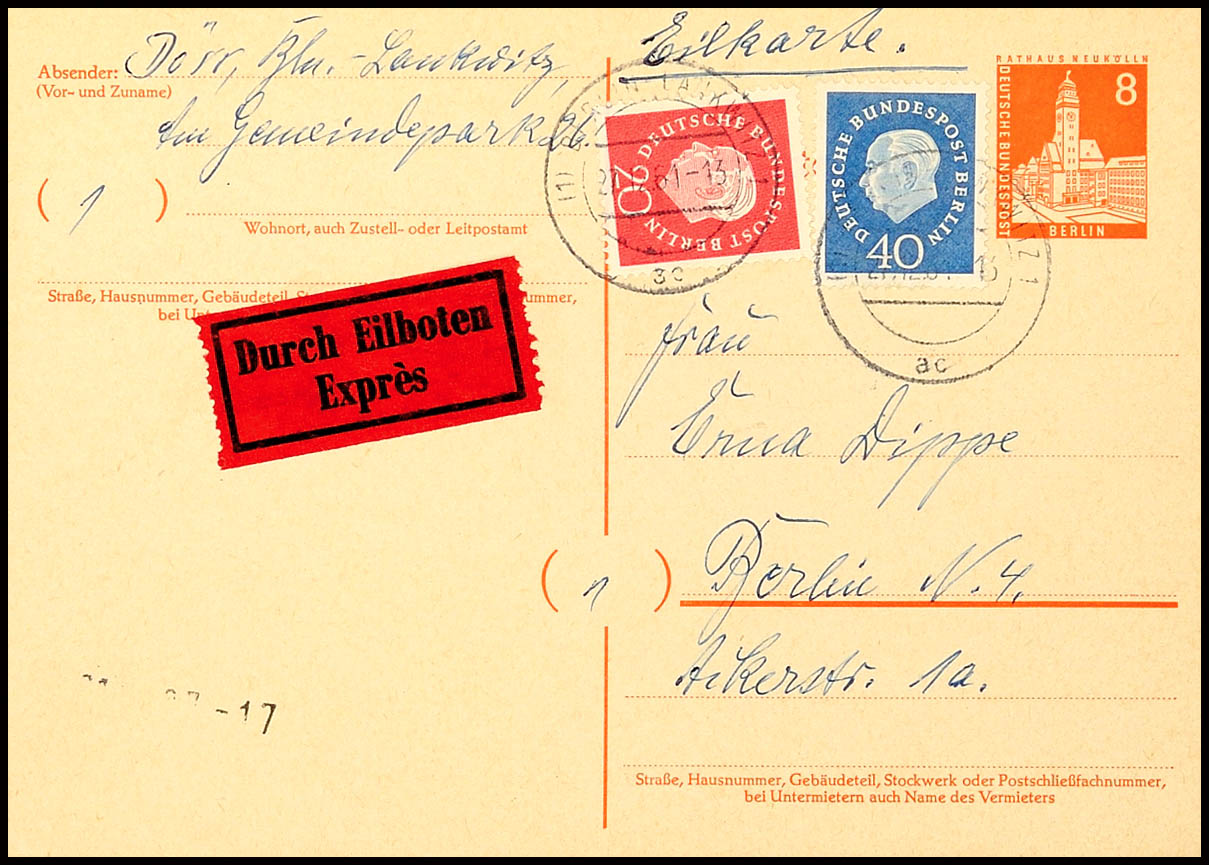 Absender: Dörr, Bln.-Lankwitz,
(Vor- und Zuname)
Am Gemeindepark 26.
( 1 )
Wohnort, auch Zustell- oder Leitpostamt
Straße, Hausnummer, Gebäudeteil, nummer,
bei
Durch Eilboten
Exprès
-17
Eilkarte.
20 DEUTSCHE BUNDESPOST BERLIN
DEUTSCHE BUNDESPOST BERLIN
40
LANKWITZ 1
61-13
ac
ac
RATHAUS NEUKÖLLN
DEUTSCHE BUNDESPOST
8
BERLIN
Frau
Erna Dippe
( 1 ) Berlin N. 4.
Ackerstr. 1a.
Straße, Hausnummer, Gebäudeteil, Stockwerk oder Postschließfachnummer,
bei Untermietern auch Name des Vermieters